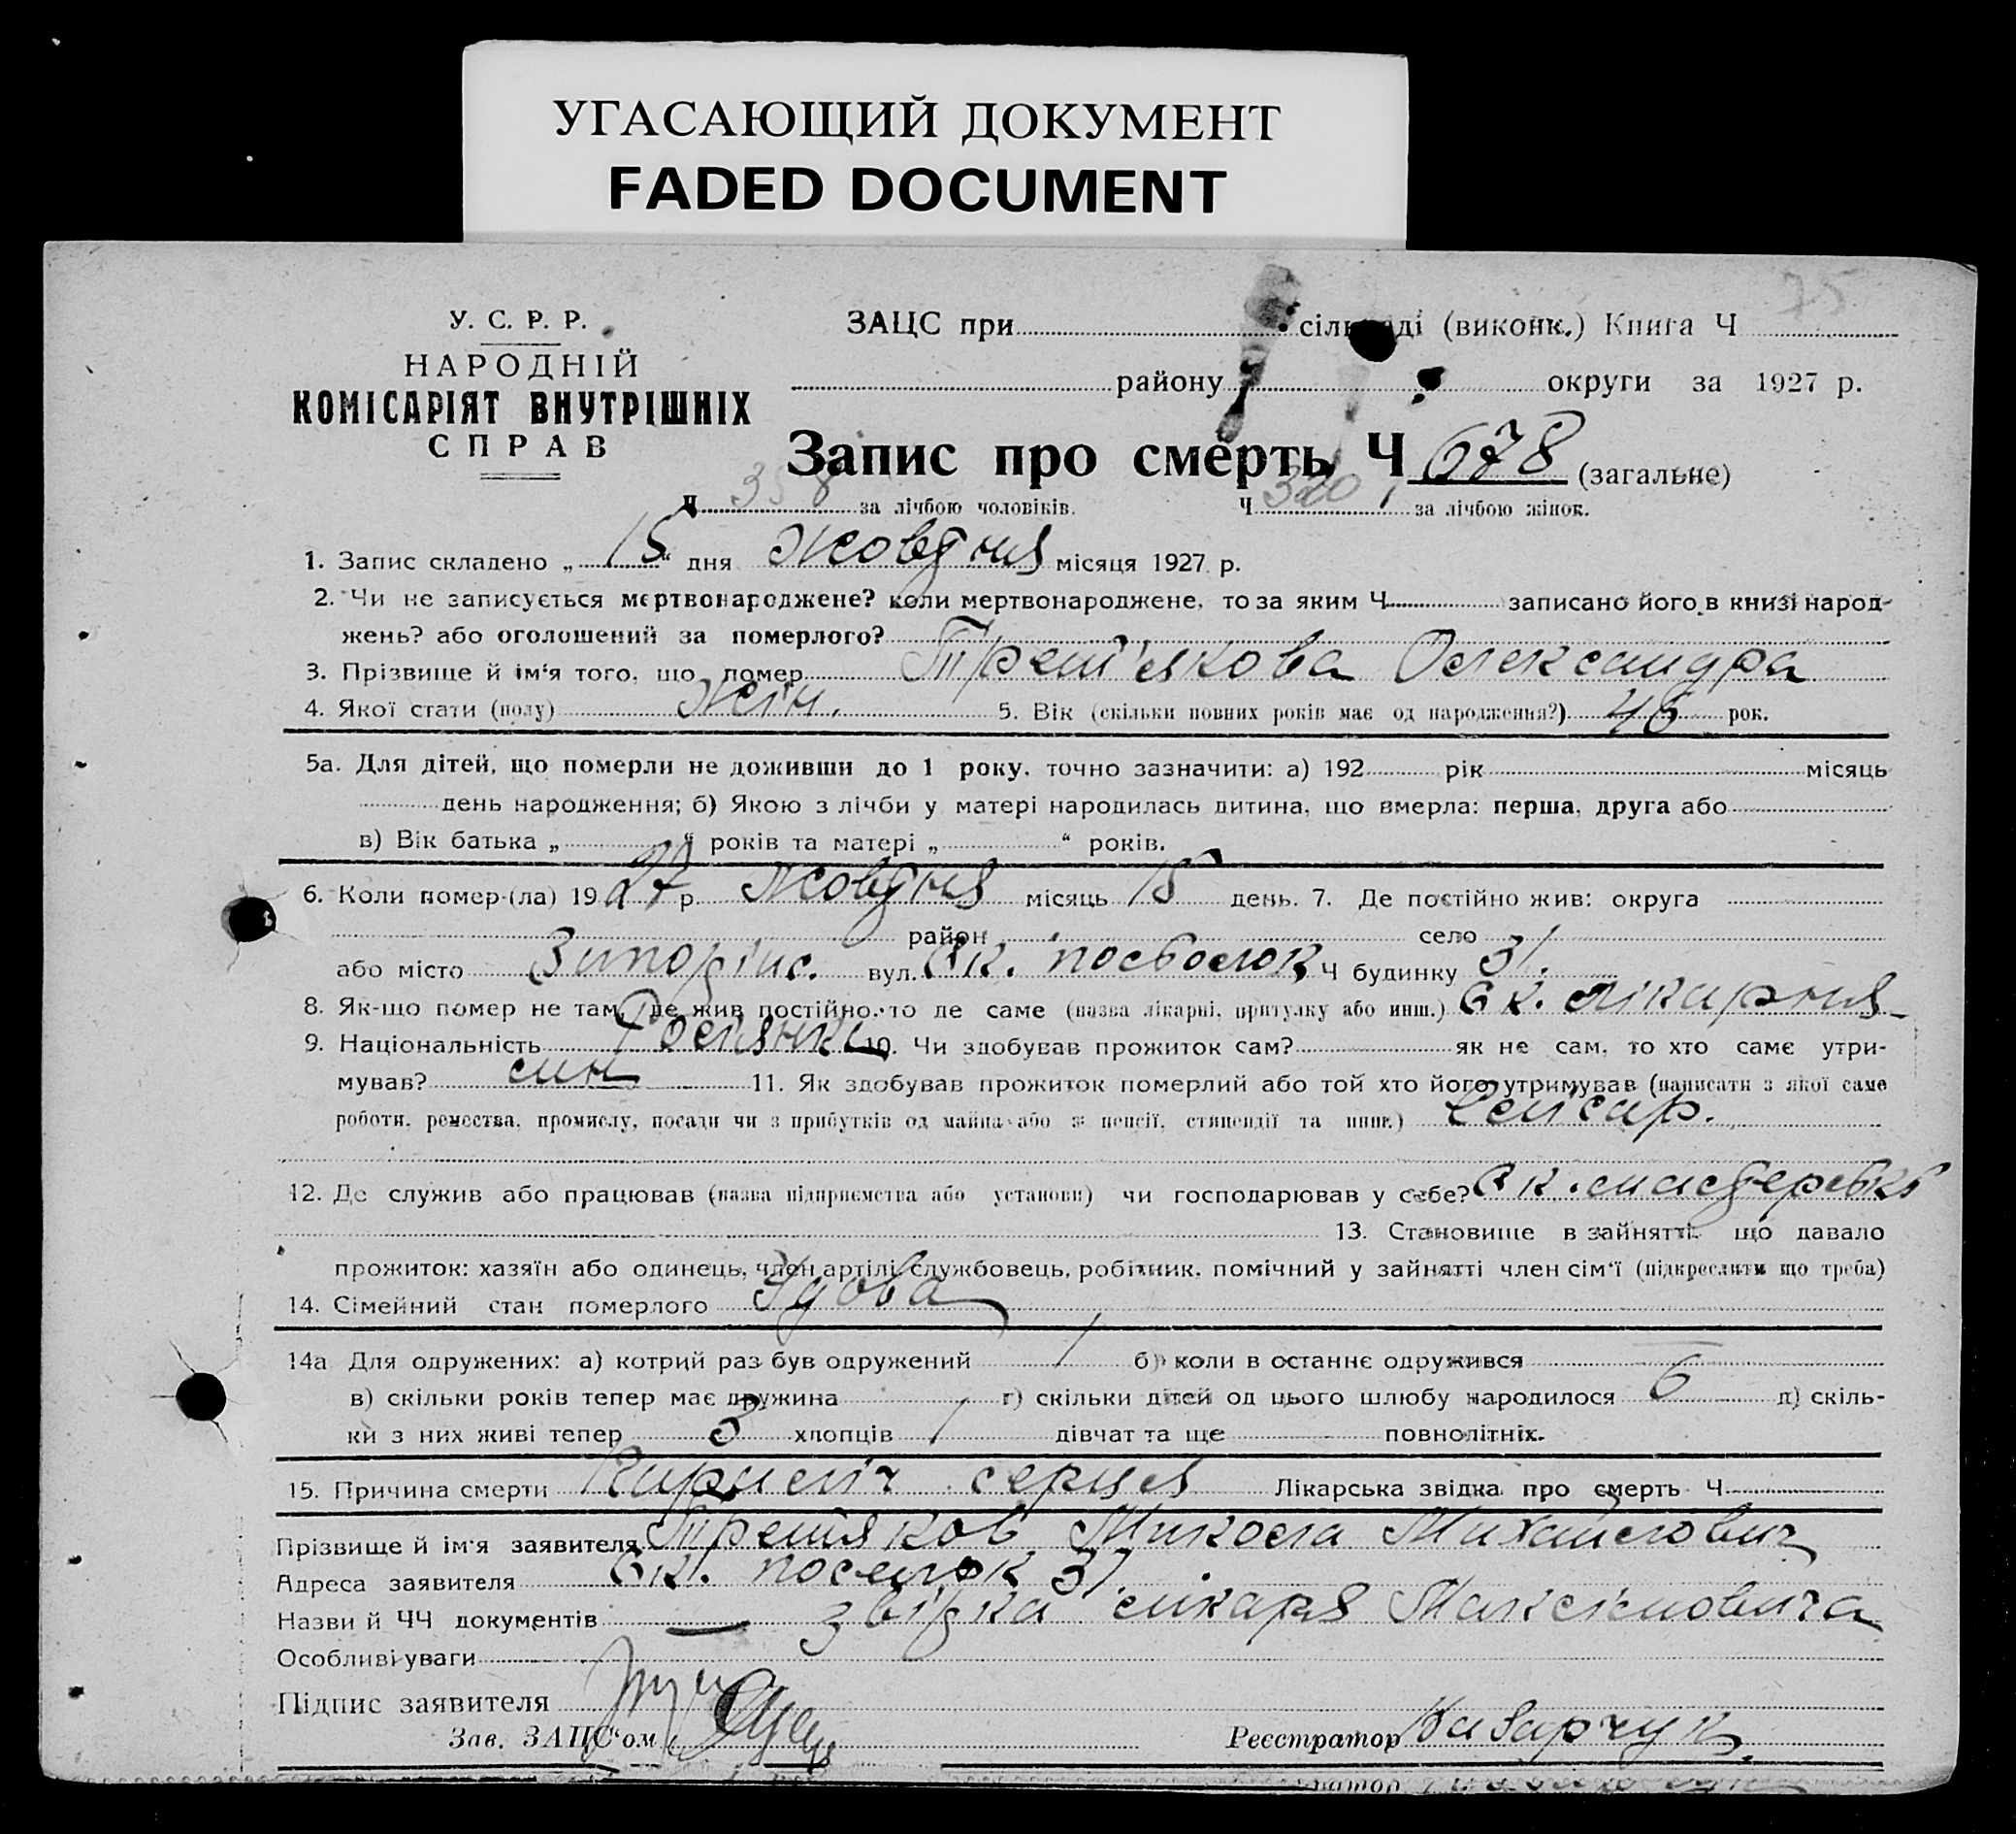 УГАСАЮЩИЙ ДОКУМЕНТ
FADED DOCUMENT
75
У. С. Р. Р.
НАРОДНІЙ
КОМІСАРІЯТ ВНУТРІШНІХ
СПРАВ
ЗАЦС при сільраді (виконк.) Книга Ч
району округи за 1927 р.
Запис про смерть Ч 678 (загальне)
Ч 358 за лічбою чоловіків. Ч 320 за лічбою жінок.
1. Запис складено „ 15 “ дня Жовтня місяця 1927 р.
2. Чи не записується мертвонароджене? коли мертвонароджене, то за яким Ч записано його в книзі народ-
жень? або оголошений за померлого?
3. Прізвище й ім‘я того, що помер Трет'якова Олександра
4. Якої стати (полу) Жін. 5. Вік (скільки повних років має од народження?) 46 рок.
5а. Для дітей, що померли не доживши до 1 року, точно зазначити: а) 192 рік місяць
день народження; б) Якою з лічби у матері народилась дитина, що вмерла: перша, друга або
в) Вік батька „ “ років та матері „ “ років.
6. Коли помер-(ла) 1927 р. Жовтня місяць 15 день. 7. Де постійно жив: округа
район село
або місто вул. Ч будинку 31.
8. Як-що помер не там, де жив постійно, то де саме (назва лікарні, притулку або инш.) лікарня
9. Національність 10. Чи здобував прожиток сам? як не сам, то хто саме утри-
мував? син 11. Як здобував прожиток померлий або той хто його утримував (написати з якої саме
роботи, ремества, промислу, посади чи з прибутків од майна або з пенсії, стипендії та инше) Слюсар.
12. Де служив або працював (назва підприємства або установи) чи господарював у себе?
13. Становище в зайнятті що давало
прожиток: хазяїн або одинець, член артілі, службовець, робітник, помічний у зайнятті член сім‘ї (підкреслити що треба)
14. Сімейний стан померлого Удова
14а Для одружених: а) котрий раз був одружений 1 б) коли в останнє одружився —
в) скільки років тепер має дружина г) скільки дітей од цього шлюбу народилося 6 д) скіль-
ки з них живі тепер 3 хлопців 1 дівчат та ще повнолітніх.
15. Причина смерти Параліч серця Лікарська звідка про смерть Ч
Прізвище й ім‘я заявителя Третяков Микола Михайлович
Адреса заявителя посьолок 31
Назви й ЧЧ документів — звідка лікаря Максимовича
Особливі уваги
Підпис заявителя
Зав. ЗАЦС‘ом Реєстратор